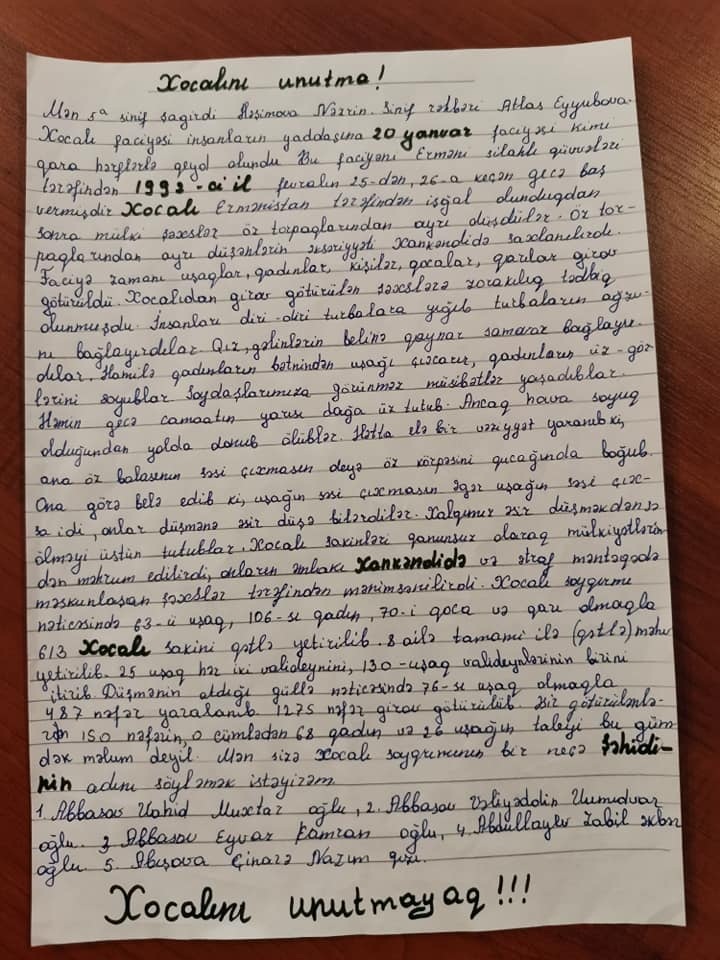 Xocalını unutma!
Mən 5ª sinif şagirdi Həşimova Nəzrin. Sinif rəhbəri Atlas Eyyubova.
Xocalı faciyəsi insanların yaddaşına 20 yanvar faciyəsi kimi
qara hərflərlə qeyd olundu Bu faciyəni Erməni silahlı qüvvələri
tərəfindən 1992-ci il fevralın 25-dən, 26-a keçən gecə baş
vermişdir Xocalı Ermənistan tərəfindən işğal olunduqdan
sonra mülki şəxslər öz torpaqlarından ayrı düşdülər. Öz tor-
paqlarından ayrı düşənlərin əksəriyyəti Xankəndidə saxlanılırdı.
Faciyə zamanı uşaqlar, qadınlar, kişilər, qocalar, qarılar girov
götürüldü. Xocalıdan girov götürülən şəxslərə zorakılıq tədbiq
olunmuşdu. İnsanları diri-diri turbalara yığıb turbaların ağzı-
nı bağlayırdılar. Qız, gəlinlərin belinə qaynar samavar bağlayır-
dılar. Hamilə qadınların bətnindən uşağı çıxarır, qadınların üz-göz-
lərini soyublar. Soydaşlarımıza görünməz müsibətlər yaşadıblar.
Həmin gecə camaatın yarısı dağa üz tutub. Ancaq hava soyuq
olduğundan yolda donub ölüblər. Hətta elə bir vəziyyət yaranıb ki,
ana öz balasının səsi çıxmasın deyə öz körpəsini qucağında boğub.
Ona görə belə edib ki, uşağın səsi çıxmasın əgər uşağın səsi çıx-
sa idi, onlar düşmənə əsir düşə bilərdilər. Xalqımız əsir düşməkdənsə
ölməyi üstün tutublar. Xocalı sakinləri qanunsuz olaraq mülkiyətlərin-
dən məhrum edilirdi, onların əmlakı Xankəndidə və ətraf məntəqədə
məskunlaşan şəxslər tərəfindən mənimsənilirdi. Xocalı soyqırımı
nəticəsində 63-ü uşaq, 106-sı qadın, 70-i qoca və qarı olmaqla
613 Xocalı sakini qətlə yetirilib. 8 ailə tamami ilə (qətlə) məhv
yetirilib. 25 uşaq hər iki valideynini, 130-uşaq valideynlərinin birini
itirib. Düşmənin atdığı güllə nəticəsində 76-sı uşaq olmaqla
487 nəfər yaralanıb. 1275 nəfər girov götürülüb. Əsir götürülənlə-
rdən 150 nəfərin, o cümlədən 68 qadın və 26 uşağın taleyi bu gün
dək məlum deyil. Mən sizə Xocalı soyqırımının bir neçə şəhidi-
nin adını söyləmək istəyirəm
1. Abbasov Vahid Muxtar oğlu, 2. Abbasov Vəliyəddin Uumudvar
oğlu. 3. Abbasov Eyvaz Kamran oğlu, 4. Abdullayev Zabil Əkbər
oğlu. 5. Abışova Çinarə Nazım qızı.
Xocalını unutmayaq!!!